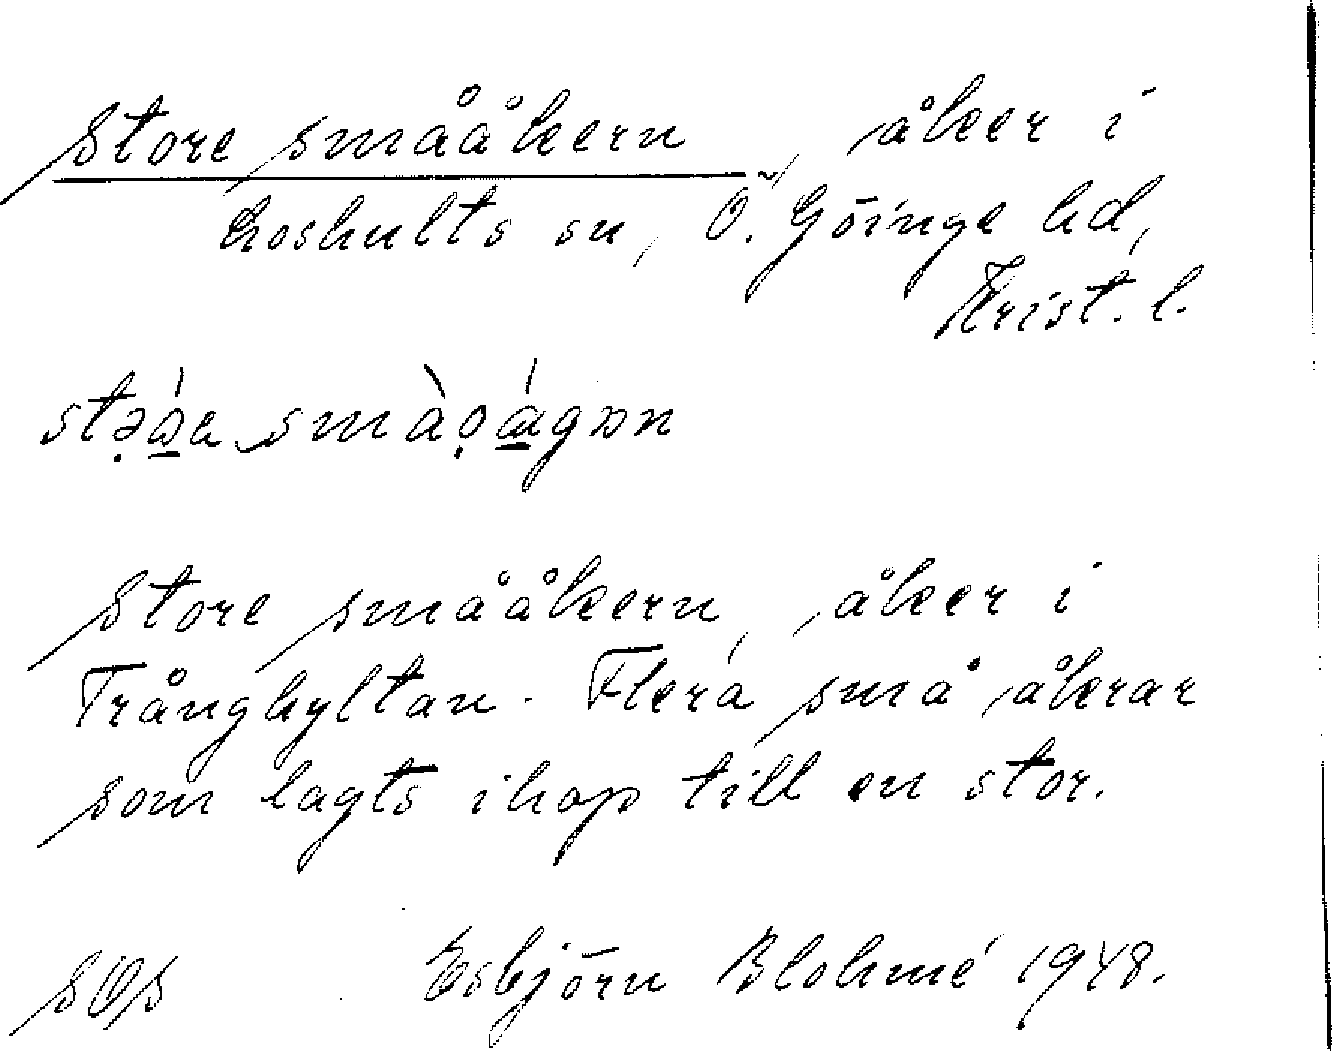 Store smååkern, åker i
Loshults sn, Ö. Göinge hd,
Krist. l.
Store smååkern, åker i
Trånghyltan. Flera små åkrar
som lagts ihop till en stor.
SOS Esbjörn Blohmé 1948.